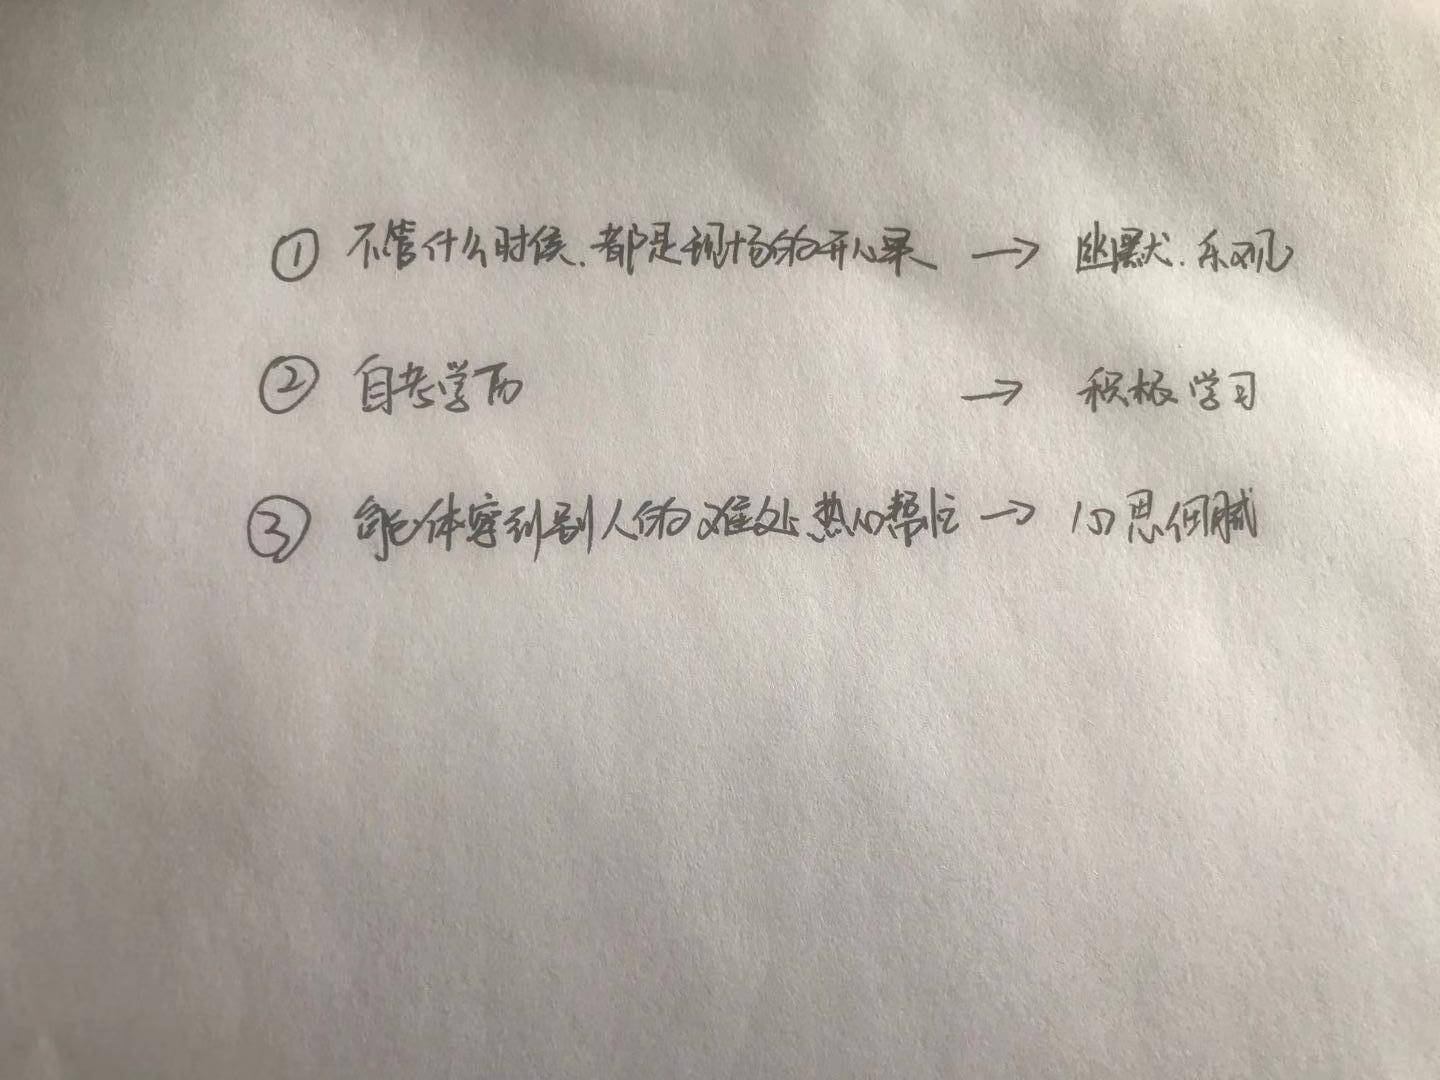 ① 不管什么时候、都是现场的开心果 → 幽默、乐观
② 自考学历 → 积极学习
③ 能体察到别人的难处热心帮忙 → 心思细腻